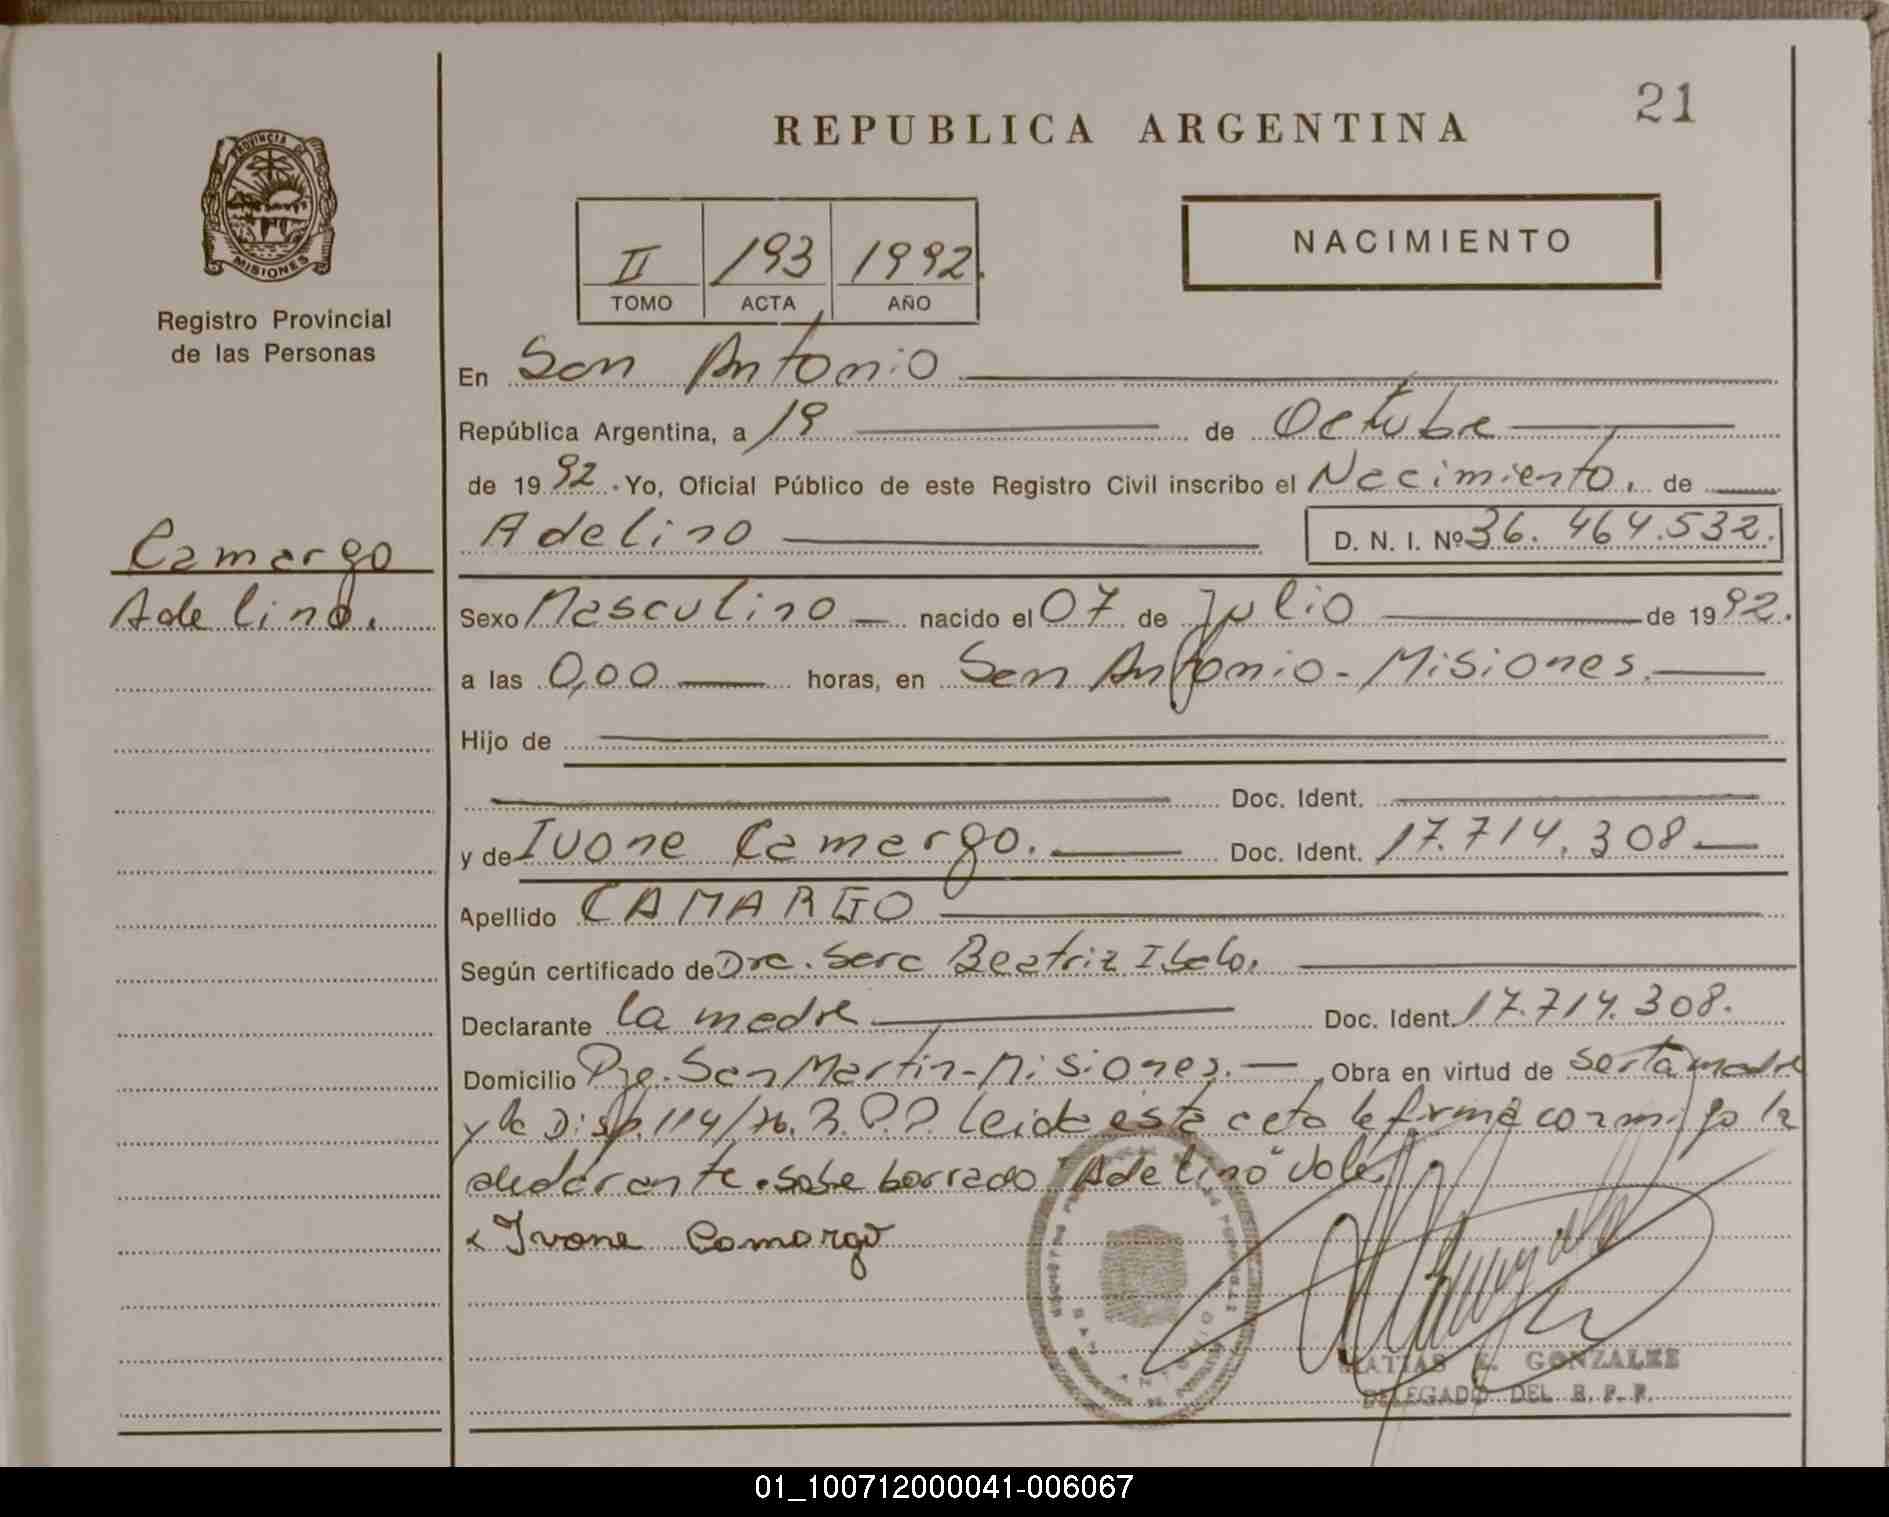 21
REPUBLICA ARGENTINA
PROVINCIA DE
MISIONES
Registro Provincial
de las Personas
II 193 1992.
TOMO ACTA AÑO
NACIMIENTO
En San Antonio
República Argentina, a 19 de Octubre
de 1992. Yo, Oficial Público de este Registro Civil inscribo el Nacimiento. de
Adelino D. N. I. Nº 36.464.532.
Camargo
Adelino.
Sexo Masculino nacido el 07 de Julio de 1992.
a las 0,00 horas, en San Antonio - Misiones.
Hijo de
Doc. Ident.
y de Ivone Camargo. Doc. Ident. 17.714.308
Apellido CAMARGO
Según certificado de Dra. Sara Beatriz
Declarante la madre Doc. Ident. 17.714.308.
Domicilio Pje. San Martín - Misiones. Obra en virtud de madre
y la Disp. 114/76. R.P.P. Leida esta acta la firma conmigo la
declarante. sobre borrado "Adelino" Vale.
Ivone Camargo
SAN ANTONIO
MATIAS GONZALEZ
DELEGADO DEL R. P. P.
01_100712000041-006067